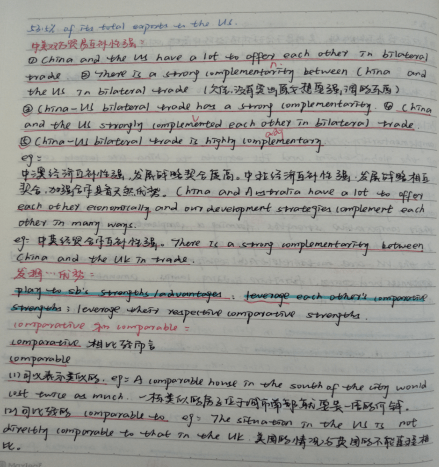 53.5% of its total exports to the US.
中美双边贸易互补性强：
① China and the US have a lot to offer each other in bilateral
trade. ② There is a strong complementarity between China and
the US in bilateral trade
n.
③ China-US bilateral trade has a strong complementarity. ④ China
and the US strongly complemented each other in bilateral trade
v
⑤ China-US bilateral trade is highly complementary.
adj
eg:
中澳经济互补性强，发展战略契合度高。中 经济互补性强，发展战略相互
契合，加强合作具有天然 。China and Australia have a lot to offer
each other economically and our development strategies complement each
other in many ways.
eg: 中英经贸合作互补性强。There is a strong complementarity between
China and the UK in trade.
发挥…优势：
play to sb's strengths/advantages; leverage each other's comparative
strengths; leverage their respective comparative strengths.
comparative 和 comparable：
comparative 相比较而言
comparable
(1) 可以表示类似的. eg: A comparable house in the south of the city would
cost twice as much. 一栋类似的房子位于城市南部 要 一倍的价钱.
(2) 可比较的 comparable to eg: The situation in the US is not
directly comparable to that in the UK. 美国的情况与英国的不能直接相
比.